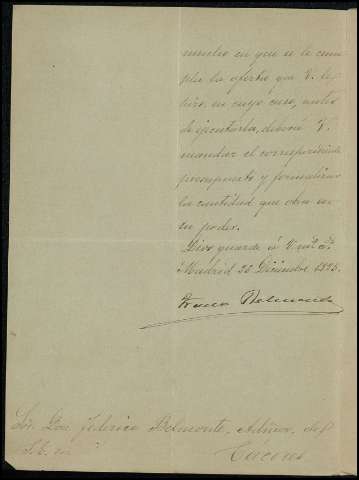 mucho en que se le cum
pla la oferta que V. les
hizo en cuyo caso, antes
de ejecutarla, deberá V.
mandar el correspondiente
presupuesto y formalizar
la cantidad que obra en
su poder.
Dios guarde á V. ms. as.
Madrid 20 Diciembre 1895.
Belmonte
Sor. Don Federico Belmonte, Admor. del
Cáceres